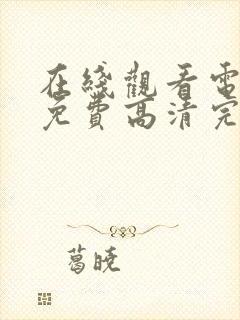 在綫觀看電
免費高清完
葛曉